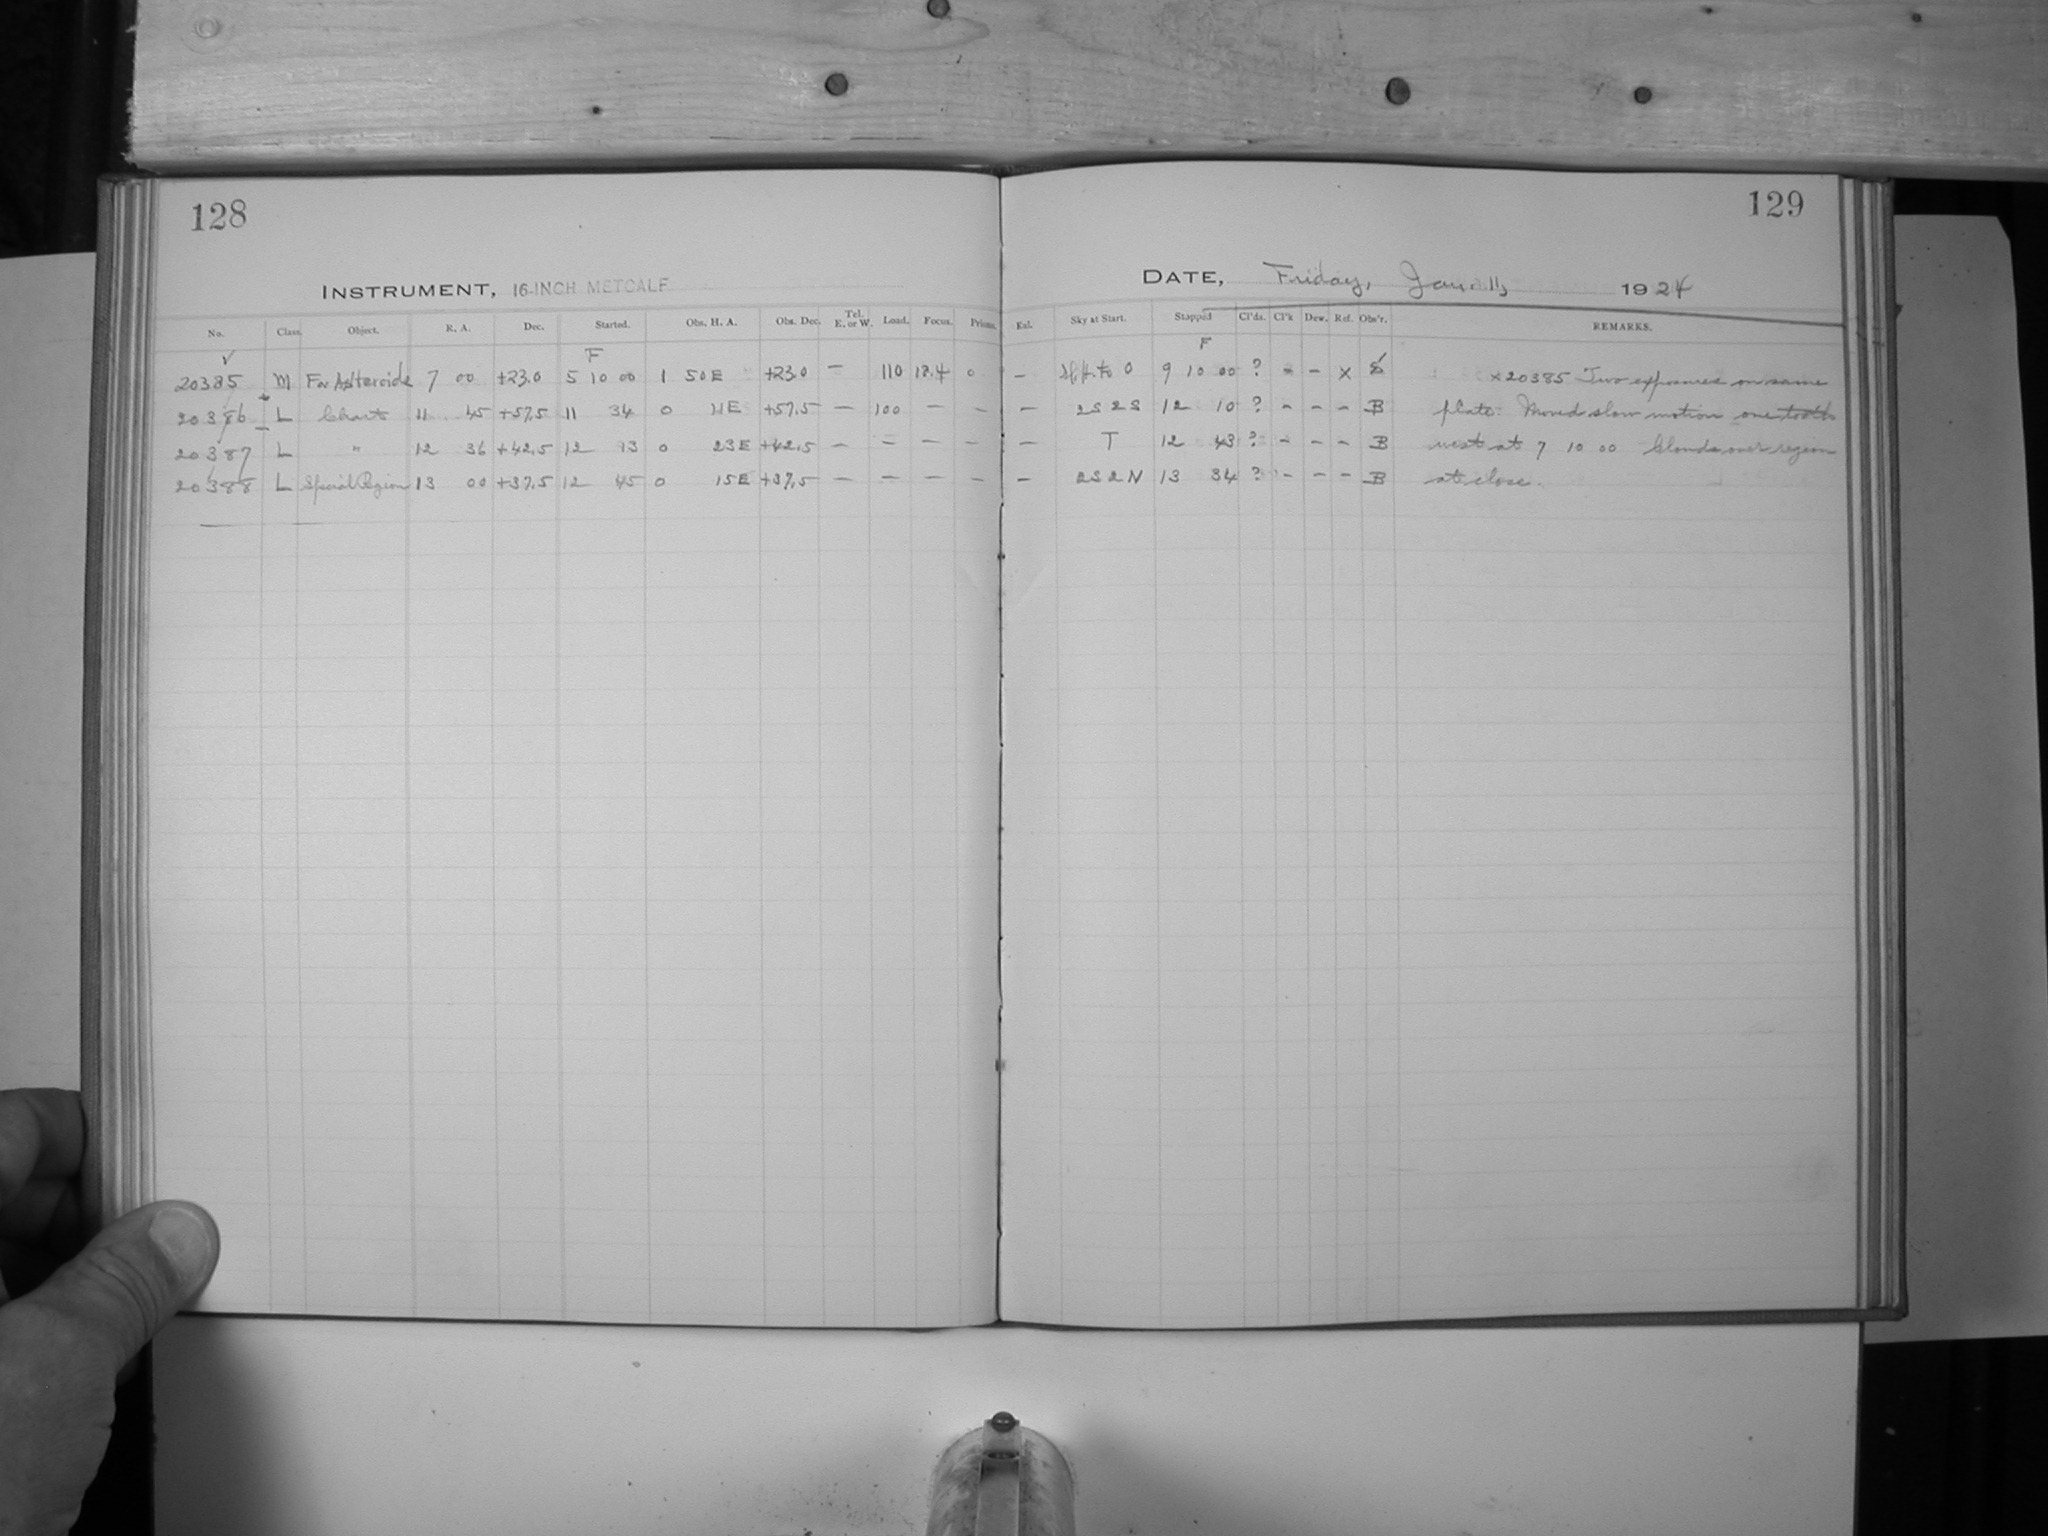 128
INSTRUMENT, 16-INCH METCALF
No. Class. Object. R. A. Dec. Started. Obs. H. A. Obs. Dec. Tel. E. or W. Load. Focus. Prisms.
F
20385 M For Asteroids 7 00 +23.0 5 10 00 1 50 E +23.0 — 110 18.4 0
20386 L Chart 11 45 +57.5 11 34 0 11 E +57.5 — 100 — —
20387 L " 12 36 +42.5 12 13 0 23 E +42.5 — — — —
20388 L Special Region 13 00 +37.5 12 45 0 15 E +37.5 — — — —
129
DATE, Friday, Jan. 11, 1924
Sky at Start. Stopped Cl'ds. Cl'k Dew. Ref. Obs'r. REMARKS.
F
— 0 9 10 00 ? - - x x20385 Two exposures on same
— 2S 2S 12 10 ? - - - B plate. Moved slow motion one tooth
— T 12 43 ? - - - B west at 7 10 00 Clouds over region
— 2S 2N 13 34 ? - - - B at close.